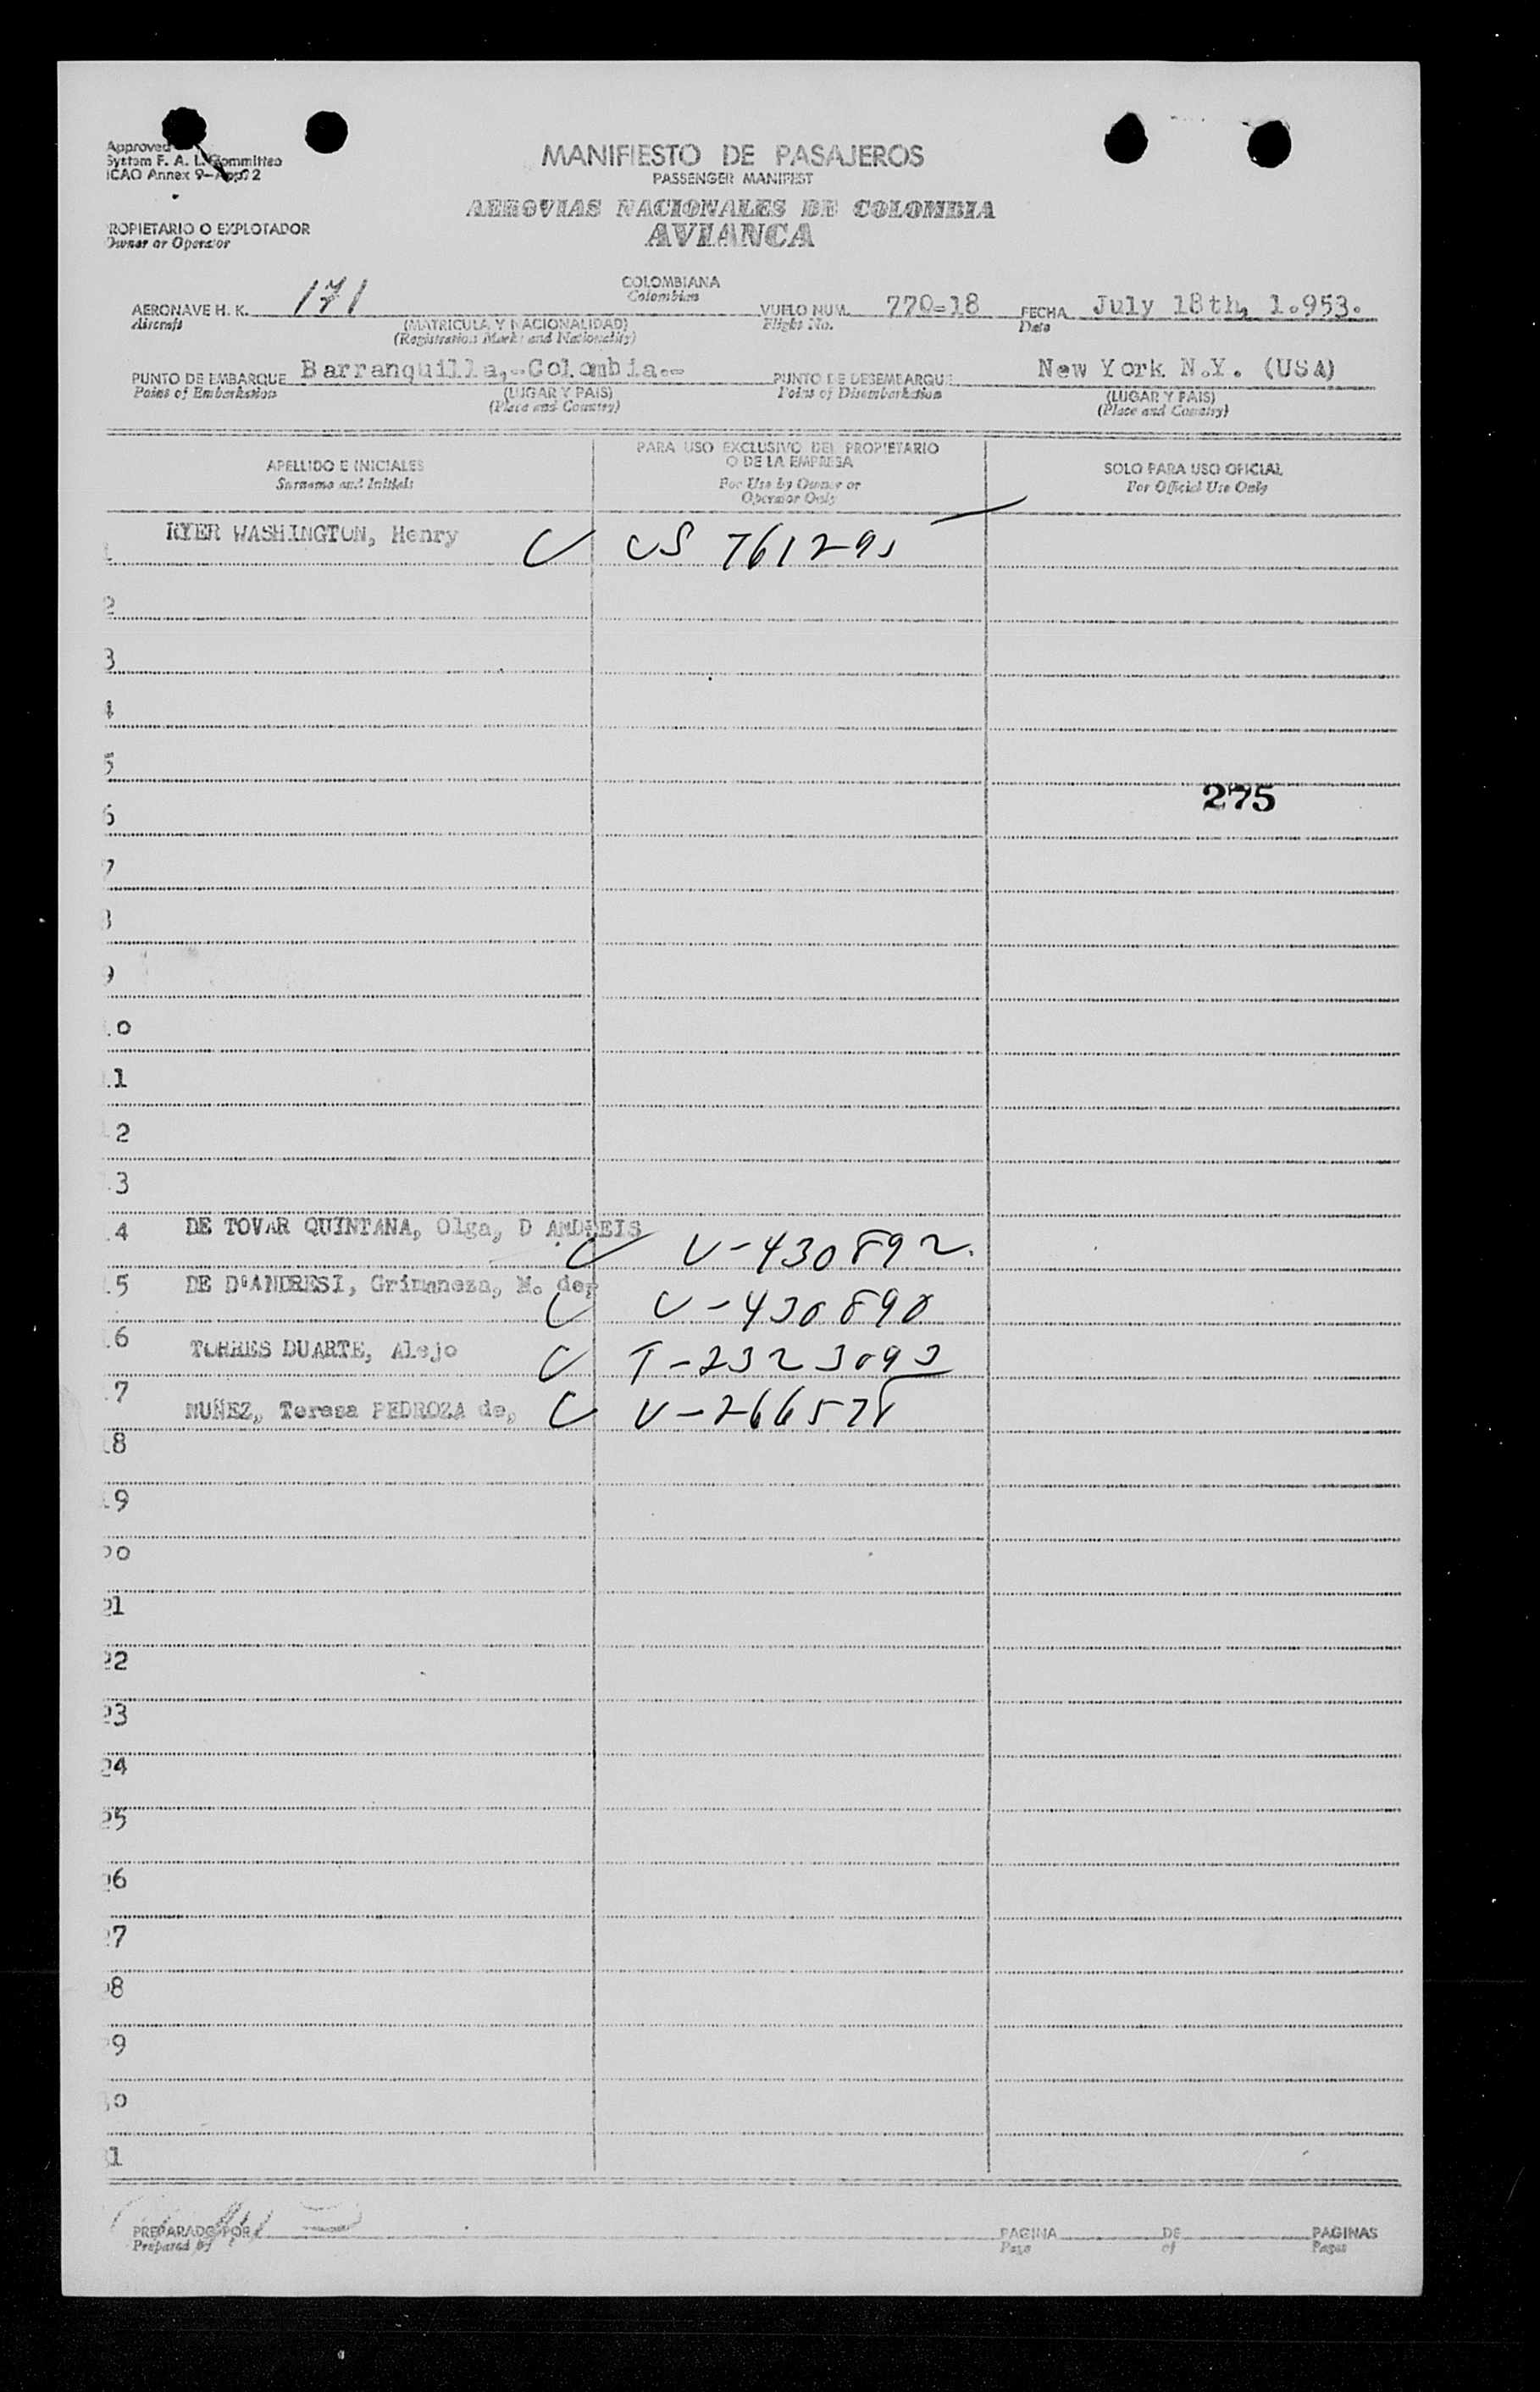 Approved
System F. A. L. Committeo
ICAO Annex 9-App. 2
MANIFIESTO DE PASAJEROS
PASSENGER MANIFEST
AEROVIAS NACIONALES DE COLOMBIA
AVIANCA
ROPIETARIO O EXPLOTADOR
Owner or Operator
COLOMBIANA
Colombian
AERONAVE H. K. 171 VUELO NUM. 770-18 FECHA July 18th, 1.953.
Aircraft (MATRICULA Y NACIONALIDAD) Flight No. Date
(Registration Marks and Nationality)
PUNTO DE EMBARQUE Barranquilla,-Colombia.- PUNTO DE DESEMBARQUE New York N.Y. (USA)
Points of Embarkation (LUGAR Y PAIS) Points of Disembarkation (LUGAR Y PAIS)
(Place and Country) (Place and Country)
APELLIDO E INICIALES PARA USO EXCLUSIVO DEL PROPIETARIO O DE LA EMPRESA SOLO PARA USO OFICIAL
Surname and Initials For Use by Owner or Operator Only For Official Use Only
RYER WASHINGTON, Henry US 761295
2
3
4
5
275
6
7
9
.0
.1
2
.3
.4 DE TOVAR QUINTANA, Olga, D ANDREIS V-430892.
.5 DE D'ANDRESI, Grimaneza, M. de, V-430890
.6 TORRES DUARTE, Alejo T-2323093
.7 NUÑEZ, Teresa PEDROZA de, V-266578
.8
.9
20
21
22
23
24
25
26
27
28
29
0
1
PREPARADO POR PAGINA DE PAGINAS
Prepared by Page of Pages